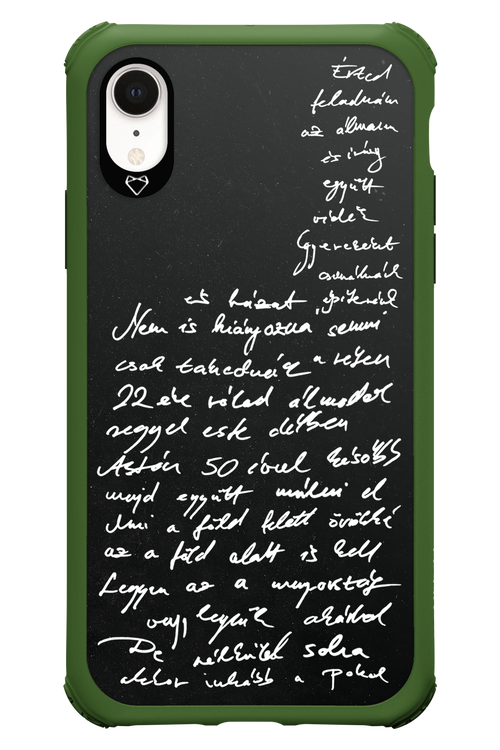 Érted
feladnám
az álmom
és irány
együtt
vidék
Gyereket
csinálnák
és házat építenék
Nem is hiányozna semmi
csak takednék a réten
22 éve rólad álmodok
reggel este délben
Aztán 50 évvel később
majd együtt múlni el
Ami a föld felett örökké
az a föld alatt is kell
Legyen az a mennyország
vagy legyünk akárhol
De nélküled soha
akkor inkább a pokol